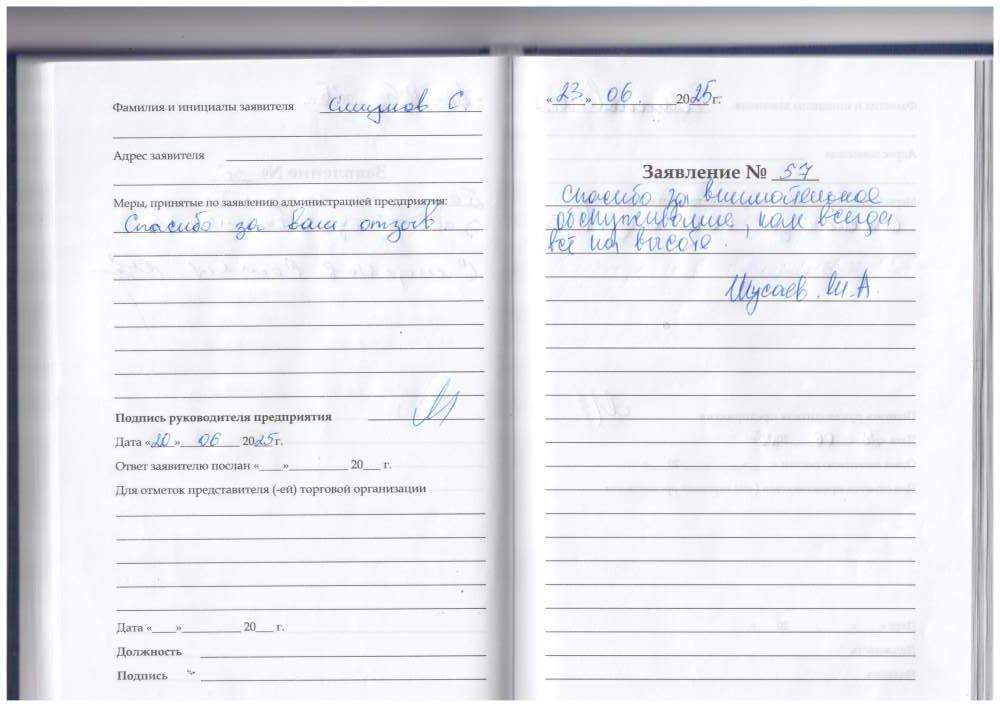 Фамилия и инициалы заявителя Смирнов С.
Адрес заявителя
Меры, принятые по заявлению администрацией предприятия:
Спасибо за ваш отзыв
Подпись руководителя предприятия
Дата «20» 06 2025г.
Ответ заявителю послан «____»__________ 20___ г.
Для отметок представителя (-ей) торговой организации
Дата «____»__________ 20___ г.
Должность
Подпись
«23» 06. 2025г.
Заявление № 57
Спасибо за внимательное
обслуживание, как всегда
всё на высоте.
Мусаев М.А.